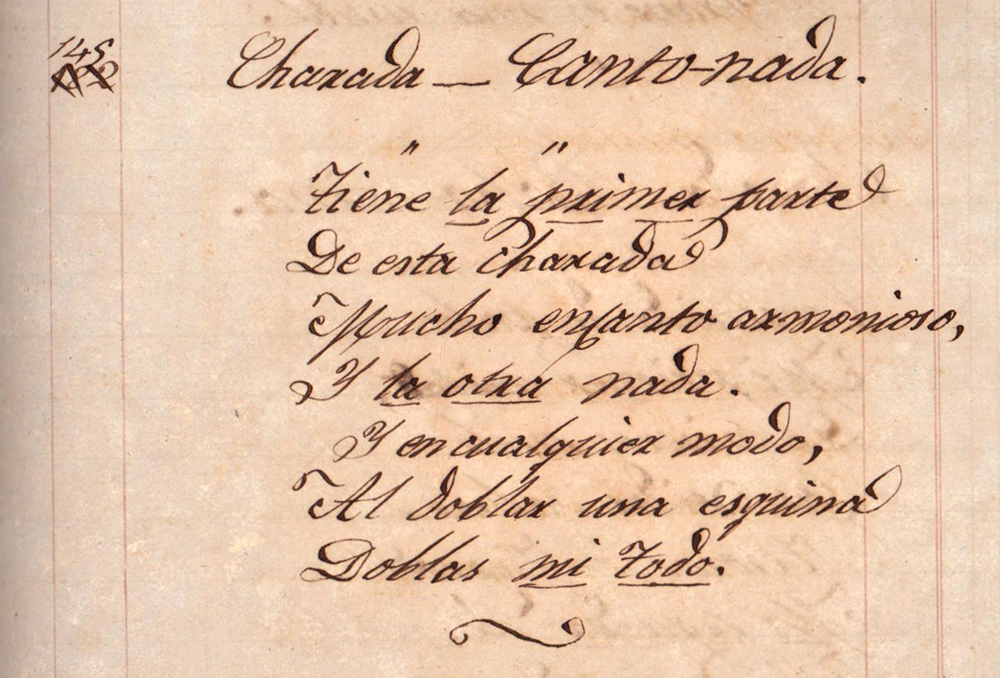 145
Charada — Canto-nada.
" "
Tiene la primer parte
De esta charada
Mucho encanto armonioso,
Y la otra nada.
Y en cualquier modo,
Al doblar una esquina
Doblas mi todo.